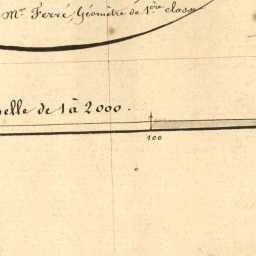 Mr. Ferré, Géomètre de 1ère classe
elle de 1 à 2000.
100